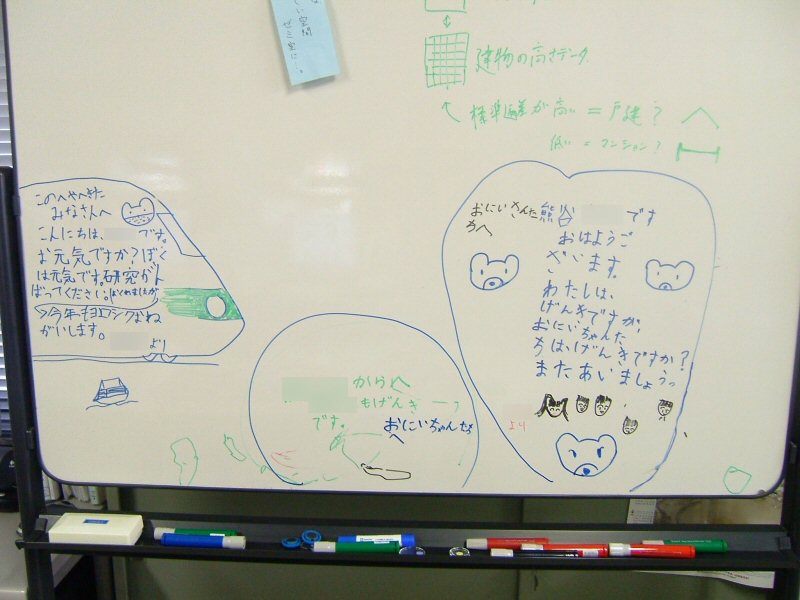 しい空間
ゼミ室に…。
建物の高さデータ
標準偏差が高い = 戸建?
低い = マンション?
このへやへきた
みなさんへ
こんにちは、 です。
お元気ですか?ぼく
は元気です。研究がん
ばってください。
今年もヨロシクおね
がいします。
より
からへ
もげんきー
です。
おにいちゃんたち
へ
おにいさんた
ちへ
熊谷 です
おはようご
ざいます。
わたしは、
げんきですが、
おにいちゃんた
ちは、げんきですか?
またあいましょうっ
より